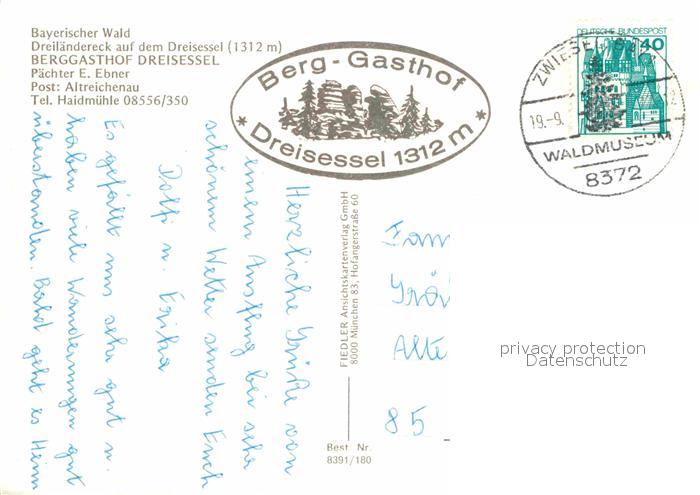 Bayerischer Wald
Dreiländereck auf dem Dreisessel (1312 m)
BERGGASTHOF DREISESSEL
Pächter E. Ebner
Post: Altreichenau
Tel. Haidmühle 08556/350
Berg-Gasthof
* Dreisessel 1312 m *
DEUTSCHE BUNDESPOST
40
ZWIESEL
19.-9.
WALDMUSEUM
8372
Herzliche Grüße von
einem Ausflug bei sehr
schönem Wetter senden Euch
Dolfi u. Erika
Es gefällt uns sehr gut u.
haben viele Wanderungen gut
überstanden. Bald geht es Heim
FIEDLER Ansichtskartenverlag GmbH
8000 München 83, Hofangerstraße 60
Fam
Grä
Alte
85
privacy protection
Datenschutz
Best. Nr.
8391/180